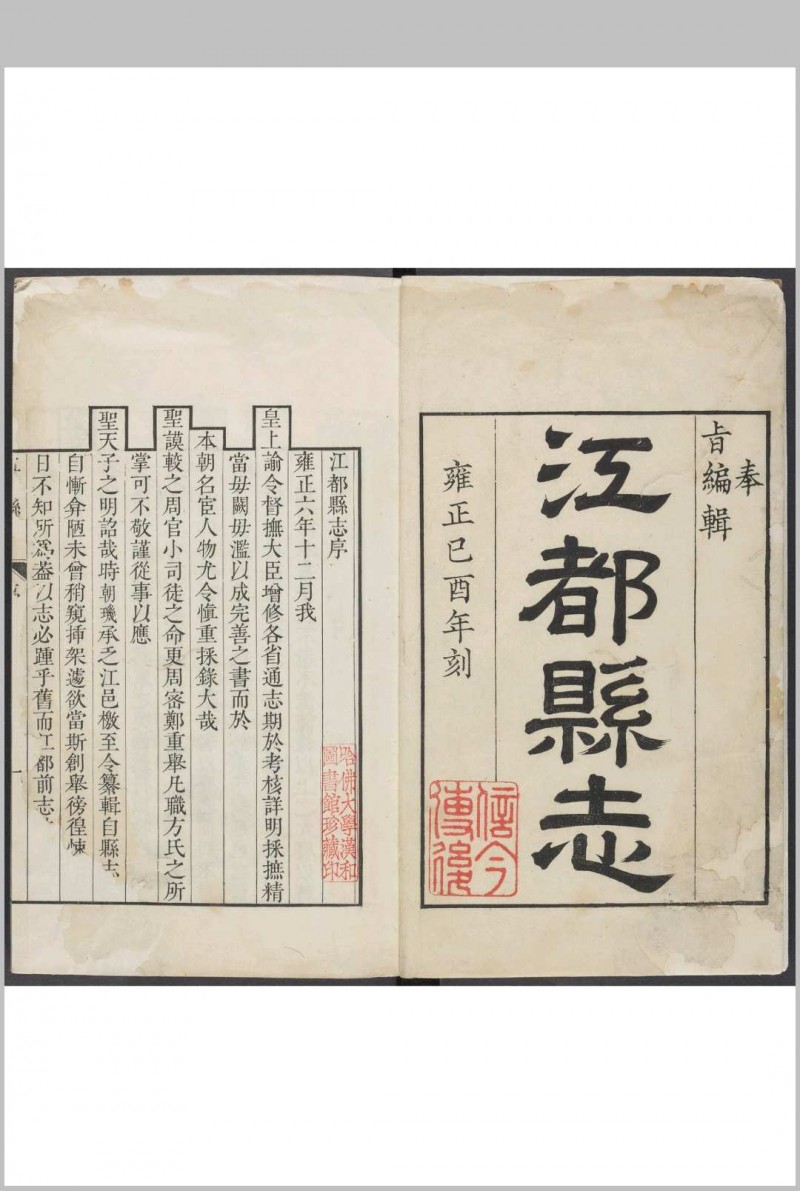 奉
旨編輯
江都縣志
雍正己酉年刻
信今
傳後
江都縣志序
哈佛大學漢和
圖書館珍藏印
雍正六年十二月我
皇上諭令督撫大臣增修各省通志期於考核詳明採摭精
當毋闕毋濫以成完善之書而於
本朝名宦人物尤令慎重採錄大哉
聖謨較之周官小司徒之命更周密鄭重舉凡職方氏之所
掌可不敬謹從事以應
聖天子之明詔哉時朝璣承乏江邑檄至令纂輯自縣志
自慚弇陋未曾稍窺挿架遽欲當斯創舉徬徨悚
日不知所爲葢以志必踵乎舊而江都前志
一